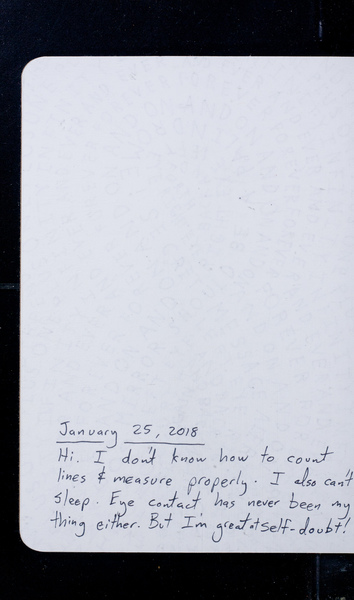 January 25, 2018
Hi. I don't know how to count
lines & measure properly. I also can't
sleep. Eye contact has never been my
thing either. But I'm great at self-doubt!